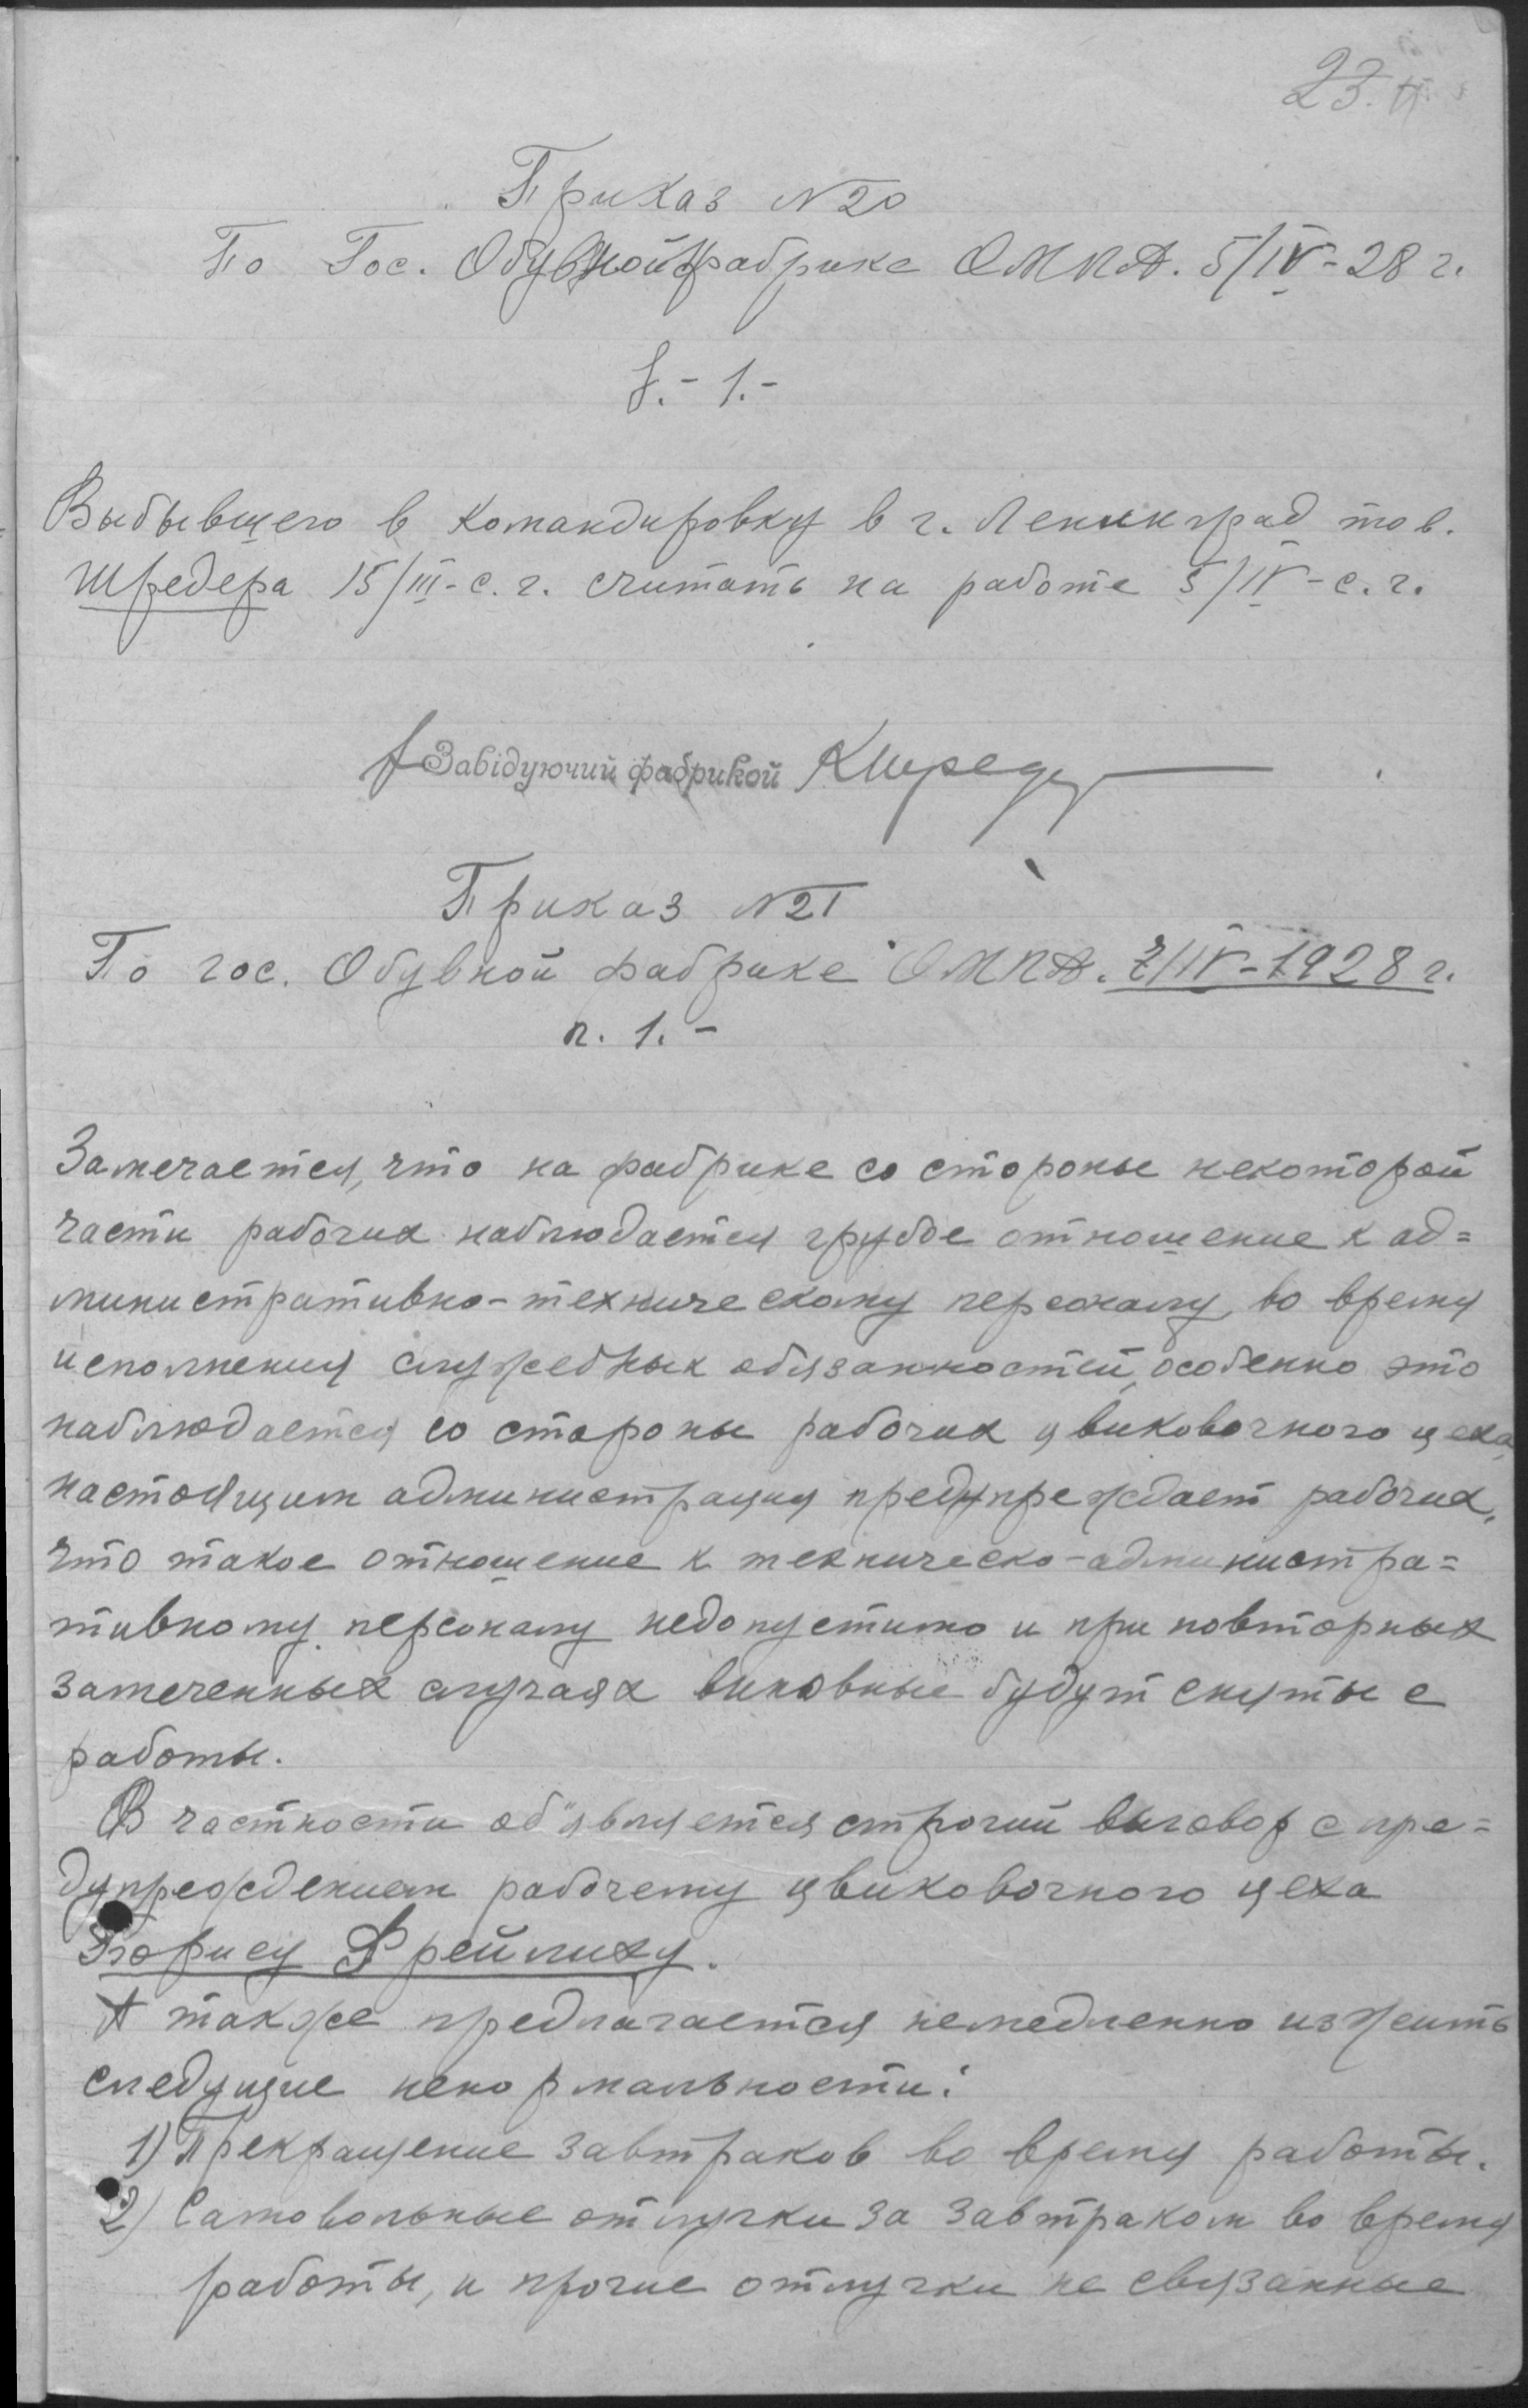 23.
Приказ N 20
По Гос. Обувной фабрике ОМПА. 5/IV-28 г.
§.- 1.-
Выбывшего в командировку в г. Ленинград тов.
Шредера 15/III-с.г. считать на работе 5/IV-с.г.
Завідуючий фабрикой
Приказ N 21
По гос. Обувной фабрике ОМПА. 7/IV-1928 г.
п. 1.-
Замечается, что на фабрике со стороны некоторой
части рабочих наблюдается грубое отношение к ад=
министративно-техническому персоналу, во время
исполнения служебных обязанностей, особенно это
наблюдается со стороны рабочих цвиковочного цеха,
настоящим администрация предупреждает рабочих,
что такое отношение к техническо-администра=
тивному персоналу недопустимо и при повторных
замеченных случаях виновные будут сняты с
работы.
В частности об"является строгий выговор с пре=
дупреждением рабочему цвиковочного цеха
Борису Фрейлиху.
А также предлагается немедленно изжить
следущие ненормальности:
1) Прекращение завтраков во время работы.
2) Самовольные отлучки за завтраком во время
работы, и прочие отлучки не связанные